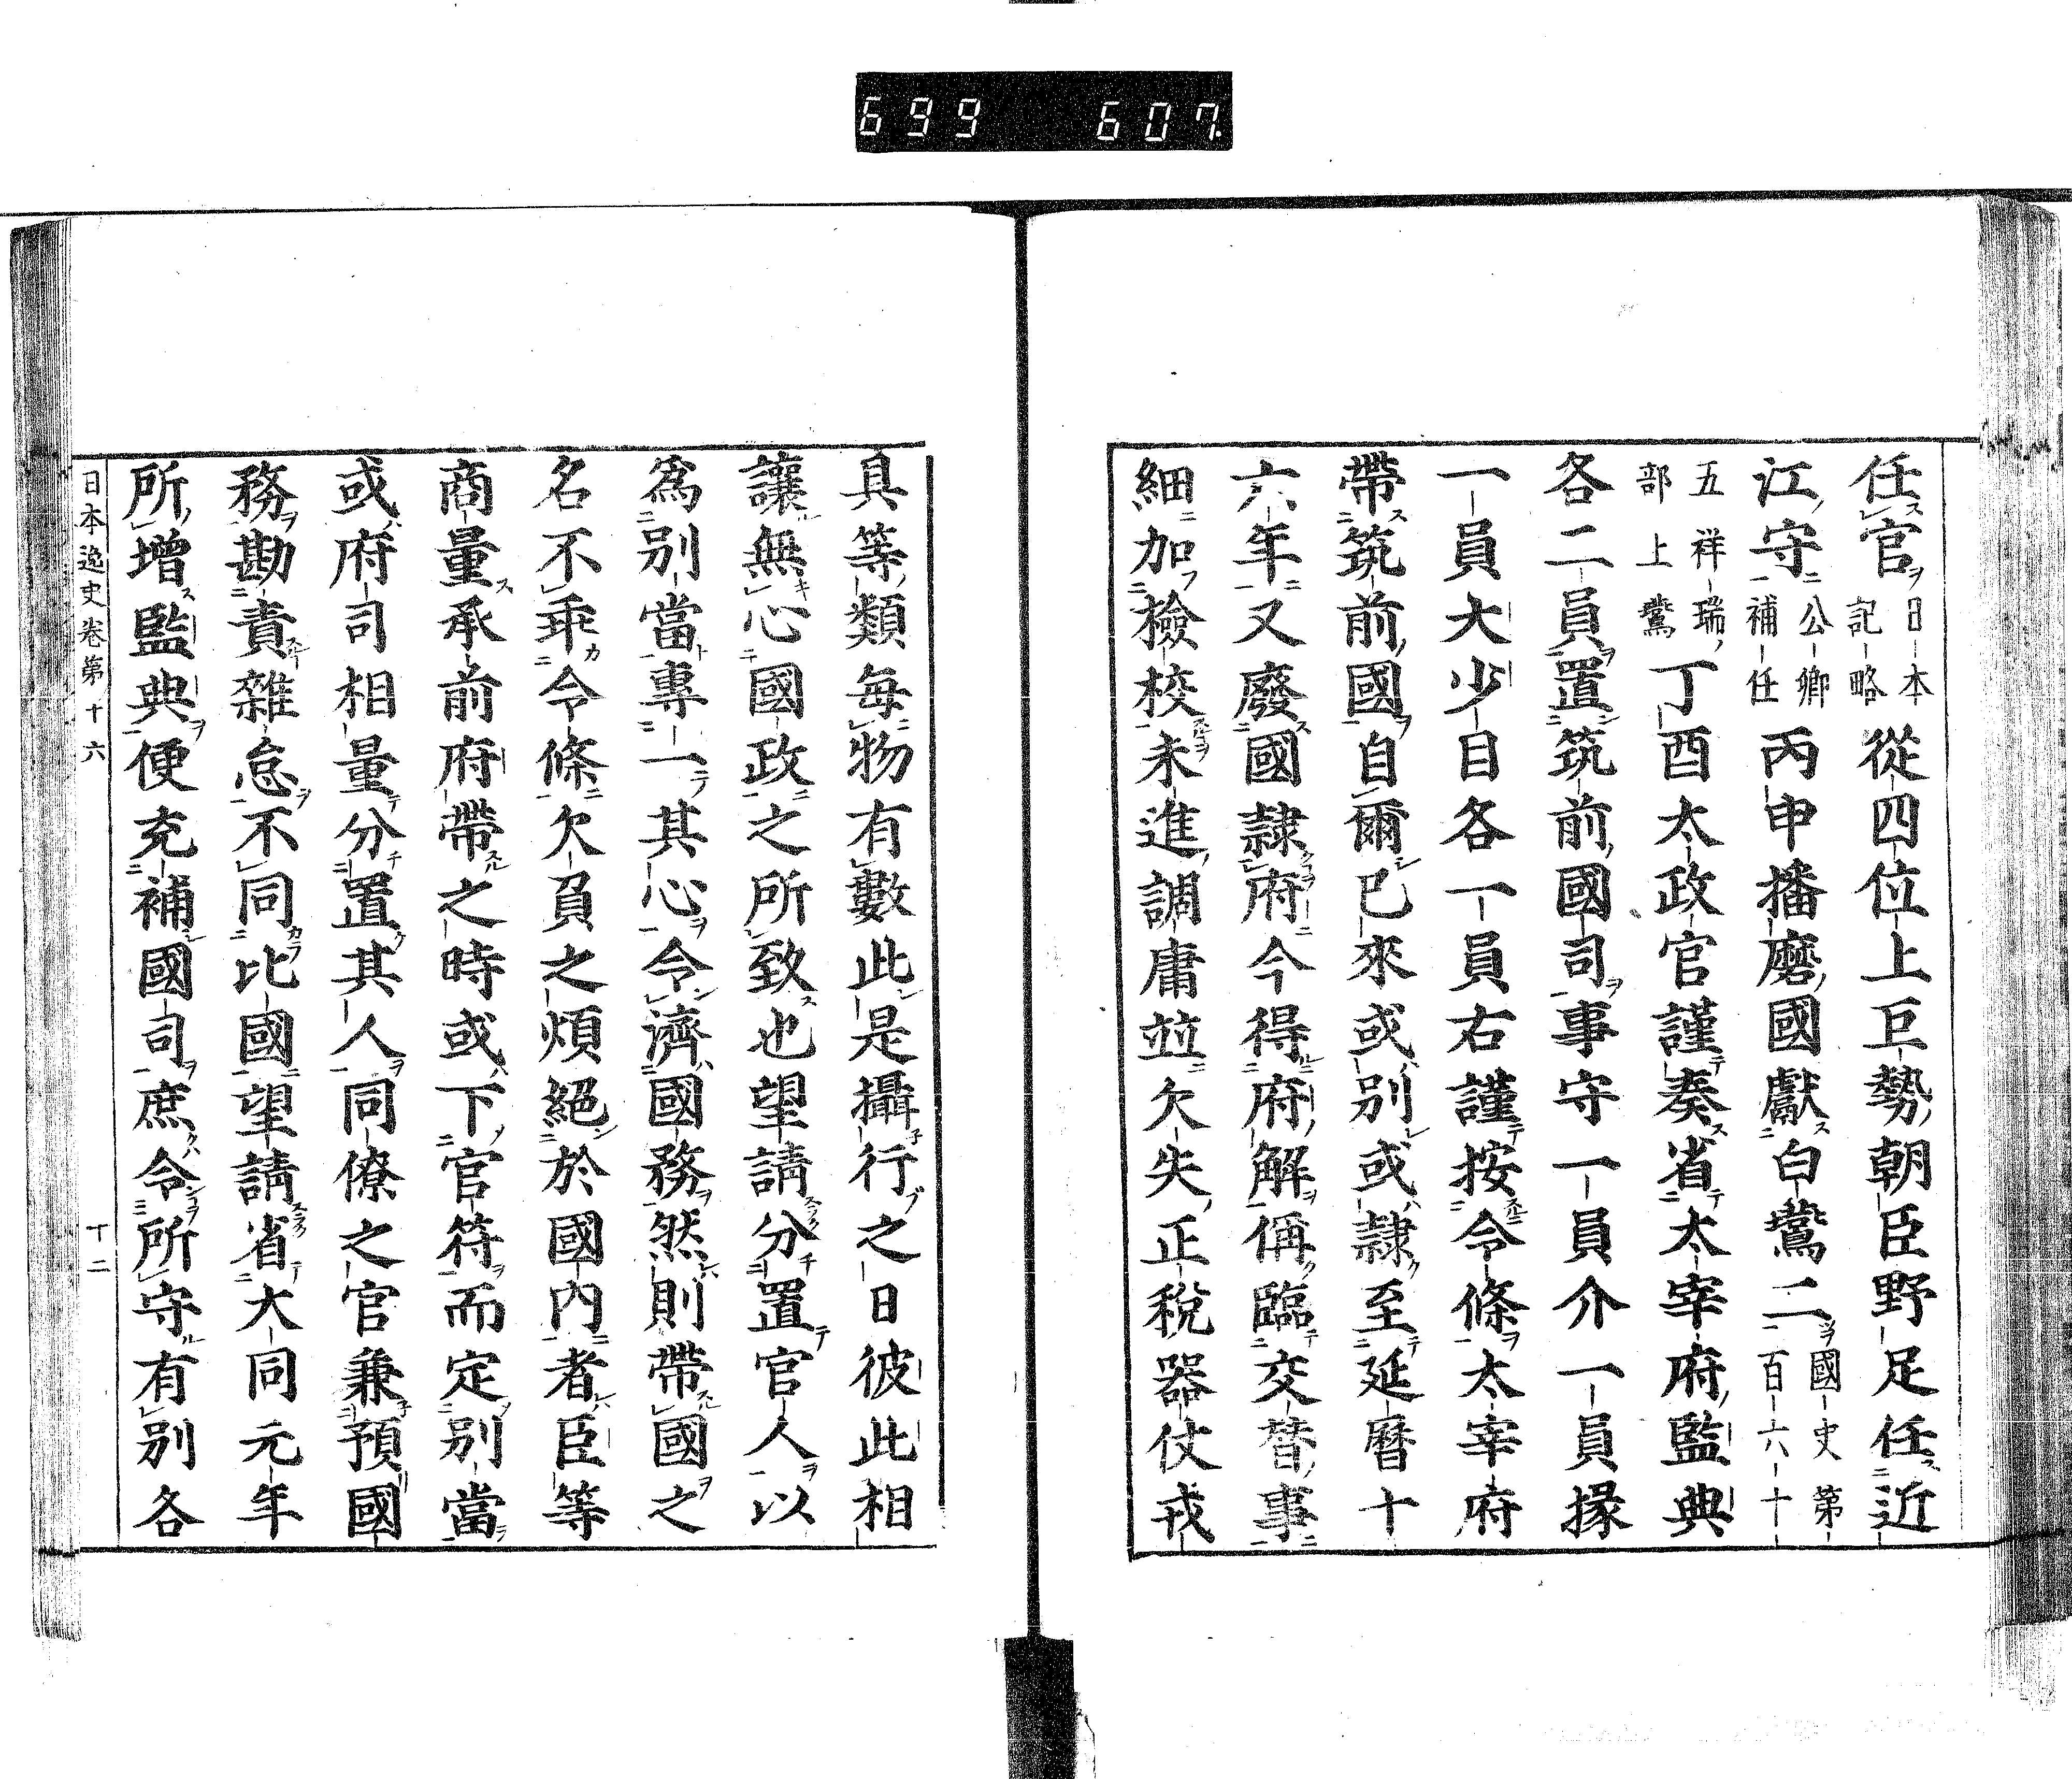 699 607.
任官日本記略從四位上巨勢朝臣野足任近
江守公卿補任丙申播磨國獻白鷩二國史第百六十
五祥瑞部上鷩丁酉太政官謹奏省太宰府監典
各二員置筑前國司事守一員介一員掾
一員大少目各一員右謹按令條太宰府
帶筑前國自爾已來或別或隷至延曆十
六年又廢國隷府今得府解偁臨交替事
細加檢校未進調庸竝欠失正稅器仗戎
具等類每物有數此是攝行之日彼此相
讓無心國政之所致也望請分置官人以
爲別當專一其心令濟國務然則帶國之
名不乖令條欠負之煩絕於國內者臣等
商量承前府帶之時或下官符而定別當
或府司相量分置其人同僚之官兼預國
務勘責雜怠不同比國望請省大同元年
所增監典便充補國司庶令所守有別各
日本逸史卷第十六 十二